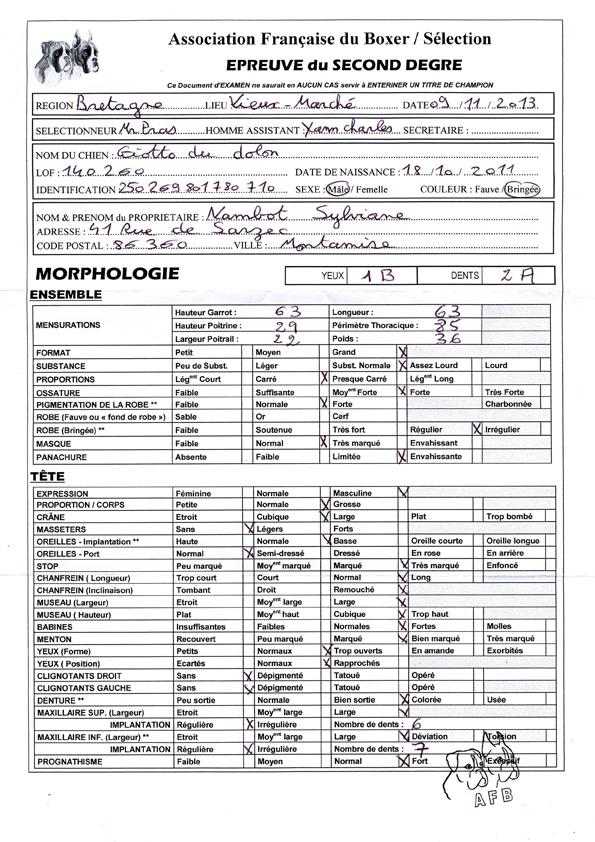 Association Française du Boxer / Sélection
EPREUVE du SECOND DEGRE
Ce Document d'EXAMEN ne saurait en AUCUN CAS servir à ENTERINER UN TITRE DE CHAMPION
REGION Bretagne LIEU Vieux-Marché DATE 09/11/2013
SELECTIONNEUR Mr Pras HOMME ASSISTANT : Yann Charles SECRETAIRE :
NOM DU CHIEN : Giotto du dolon
LOF : 140 260 DATE DE NAISSANCE : 18/10/2011
IDENTIFICATION 250 269 801 780 710 SEXE : Mâle / Femelle COULEUR : Fauve / Bringée
NOM & PRENOM du PROPRIETAIRE : Nambot Sylviane
ADRESSE : 41 Rue de Sarzec
CODE POSTAL : 86 360 VILLE : Montamise
MORPHOLOGIE YEUX 1 B DENTS 2 A
ENSEMBLE
MENSURATIONS Hauteur Garrot : 63 Longueur : 63
Hauteur Poitrine : 29 Périmètre Thoracique : 85
Largeur Poitrail : 22 Poids : 36
FORMAT Petit Moyen Grand X
SUBSTANCE Peu de Subst. Léger Subst. Normale X Assez Lourd Lourd
PROPORTIONS Légent Court Carré X Presque Carré Légent Long
OSSATURE Faible Suffisante Moyent Forte X Forte Très Forte
PIGMENTATION DE LA ROBE ** Faible Normale X Forte Charbonnée
ROBE (Fauve ou « fond de robe ») Sable Or Cerf
ROBE (Bringée) ** Faible Soutenue Très fort Régulier X Irrégulier
MASQUE Faible Normal X Très marqué Envahissant
PANACHURE Absente Faible Limitée X Envahissante
TÊTE
EXPRESSION Féminine Normale Masculine X
PROPORTION / CORPS Petite Normale X Grosse
CRÂNE Etroit Cubique X Large Plat Trop bombé
MASSETERS Sans X Légers Forts
OREILLES - Implantation ** Haute Normale X Basse Oreille courte Oreille longue
OREILLES - Port Normal X Semi-dressé Dressé En rose En arrière
STOP Peu marqué Moyent marqué Marqué X Très marqué Enfoncé
CHANFREIN ( Longueur) Trop court Court Normal X Long
CHANFREIN (Inclinaison) Tombant Droit Remouché X
MUSEAU (Largeur) Etroit Moyent large Large X
MUSEAU ( Hauteur) Plat Moyent haut Cubique X Trop haut
BABINES Insuffisantes Faibles Normales X Fortes Molles
MENTON Recouvert Peu marqué Marqué X Bien marqué Très marqué
YEUX (Forme) Petits Normaux X Trop ouverts En amande Exorbités
YEUX ( Position) Ecartés Normaux X Rapprochés
CLIGNOTANTS DROIT Sans X Dépigmenté Tatoué Opéré
CLIGNOTANTS GAUCHE Sans X Dépigmenté Tatoué Opéré
DENTURE ** Peu sortie Normale Bien sortie X Colorée Usée
MAXILLAIRE SUP. (Largeur) Etroit Moyent large Large X
IMPLANTATION Régulière X Irrégulière Nombre de dents : 6
MAXILLAIRE INF. (Largeur) ** Etroit Moyent large Large X Déviation Torsion
IMPLANTATION Régulière X Irrégulière Nombre de dents : 7
PROGNATHISME Faible Moyen Normal X Fort Excessif
AFB